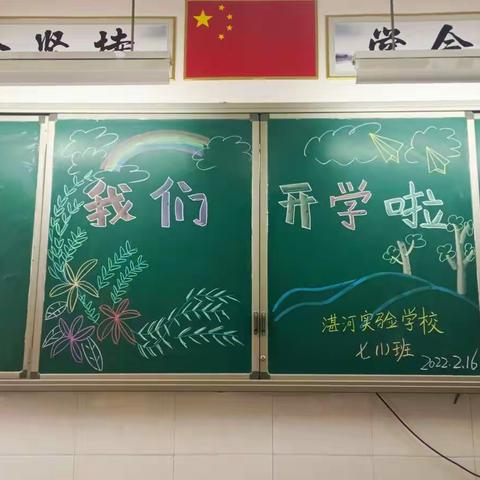 坚持
学会
我们 开学啦
湛河实验学校
七(1)班 2022.2.16